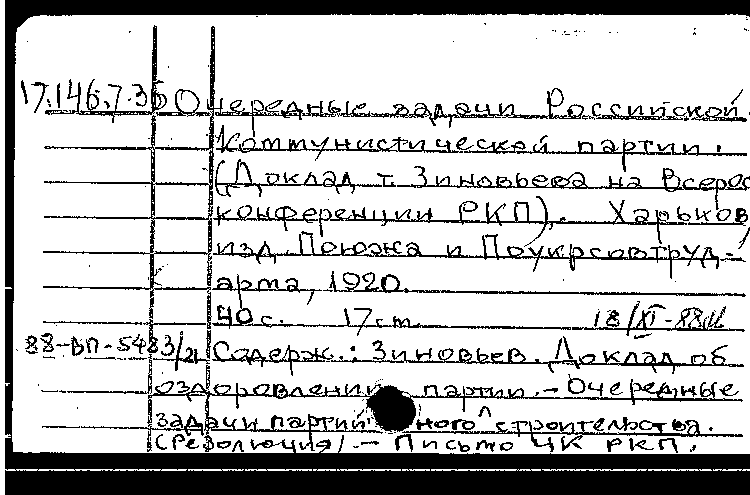 17.146.7.35 Очередные задачи Российской
Коммунистической партии.
(Доклад т. Зиновьева на Всерос
конференции РКП). Харьков,
изд. Поюжа и Поукрсовтруд-
арма, 1920.
40 с. 17 cm. 18/XI-88
88-ВП-5483/21 Содерж.: Зиновьев. Доклад об
оздоровлении партии. – Очередные
задачи партийного строительства.
(Резолюция). – Письмо ЦК РКП.